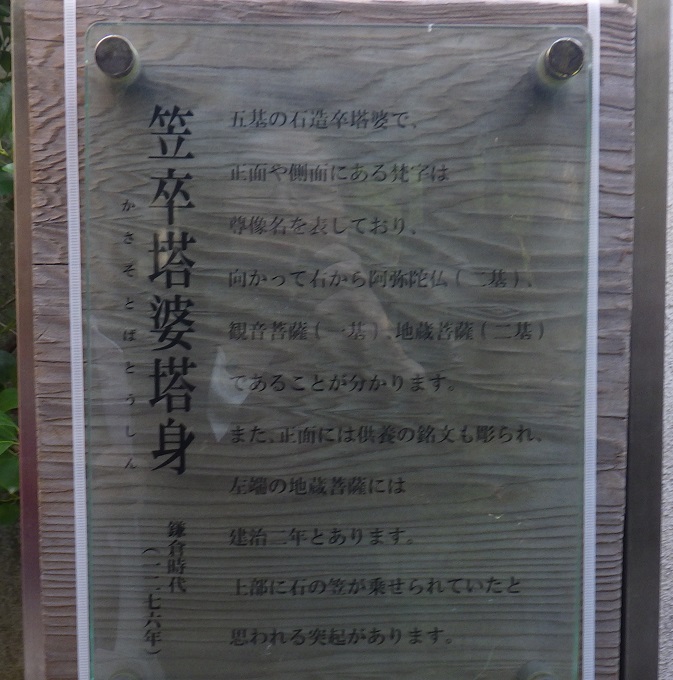 笠卒塔婆塔身
かさそとばとうしん
鎌倉時代
（一二七六年）
五基の石造卒塔婆で、
正面や側面にある梵字は
尊像名を表しており、
向かって右から阿弥陀仏（二基）、
観音菩薩（一基）、地蔵菩薩（二基）
であることが分かります。
また、正面には供養の銘文も彫られ、
左端の地蔵菩薩には
建治二年とあります。
上部に石の笠が乗せられていたと
思われる突起があります。